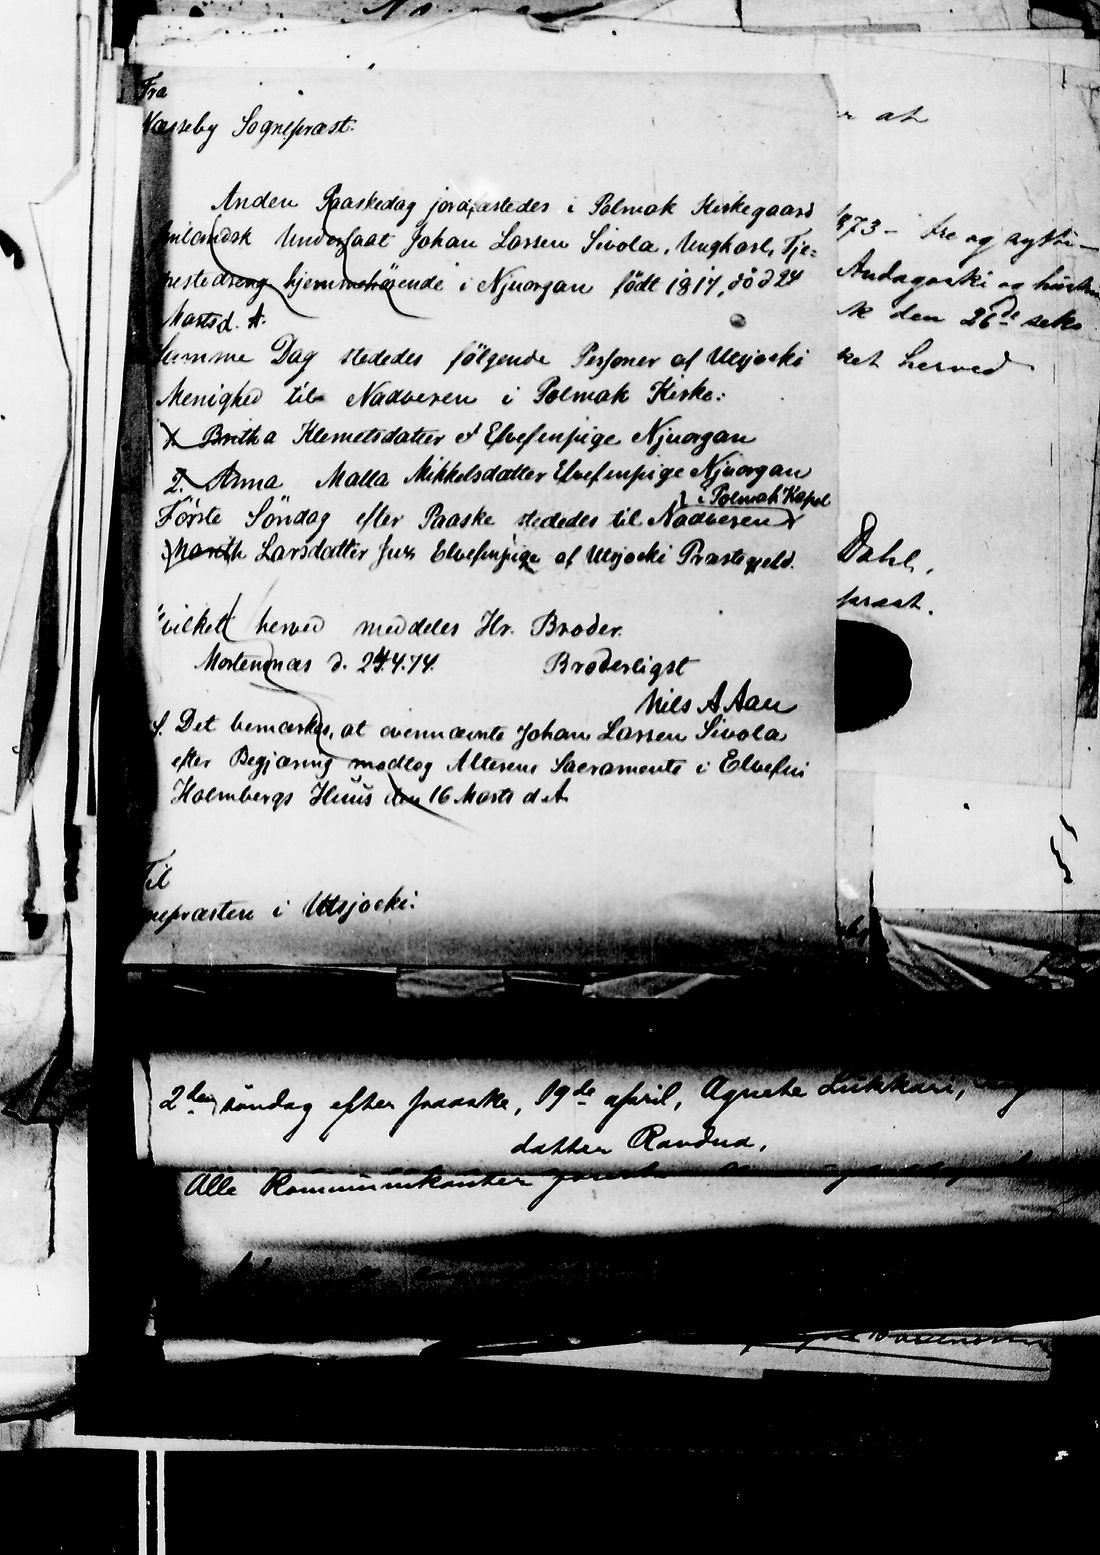 Fra
Næsseby Sognepræst.
Anden Paaskedag jordfæstedes i Polmak Kirkegaard
finlandsk Undersaat Johan Larsen Sivola, Ungkarl, Tje=
nestedreng hjemmehörende i Njuorgan födt 1817, död 24
Marts d. A.
Samme Dag stededes fölgende Personer af Utsjocki
Menighed til Nadveren i Polmak Kirke:
1. Britha Klemetsdatter Elvefinpige Njuorgan
2. Anna Malla Mikkelsdatter Elvefinpige Njuorgan
i Polmak Kapel
Förste Söndag efter Paaske stededes til Nadveren
Marith Larsdatter Elvefinpige af Utsjocki Præstegjeld.
hvilket herved meddeles Hr. Broder.
Mortensnæs d. 24.4.74.
Broderligst
Nils A Aan
Det bemærkes, at ovennævnte Johan Larsen Sivola
efter Begjæring modtog Alterens Sacramente i Elvefin
Holmbergs Huus den 16 Marts d. A
Til
nepræsten i Utsjocki.
at
1873 - tre og sytti -
Andagoski og hustru
den 26de seks
ket herved
Dahl,
præst.
2den söndag efter paaske, 19de april, Agnete Lukkari, og
datter Ravdna.
Alle kommunikanter